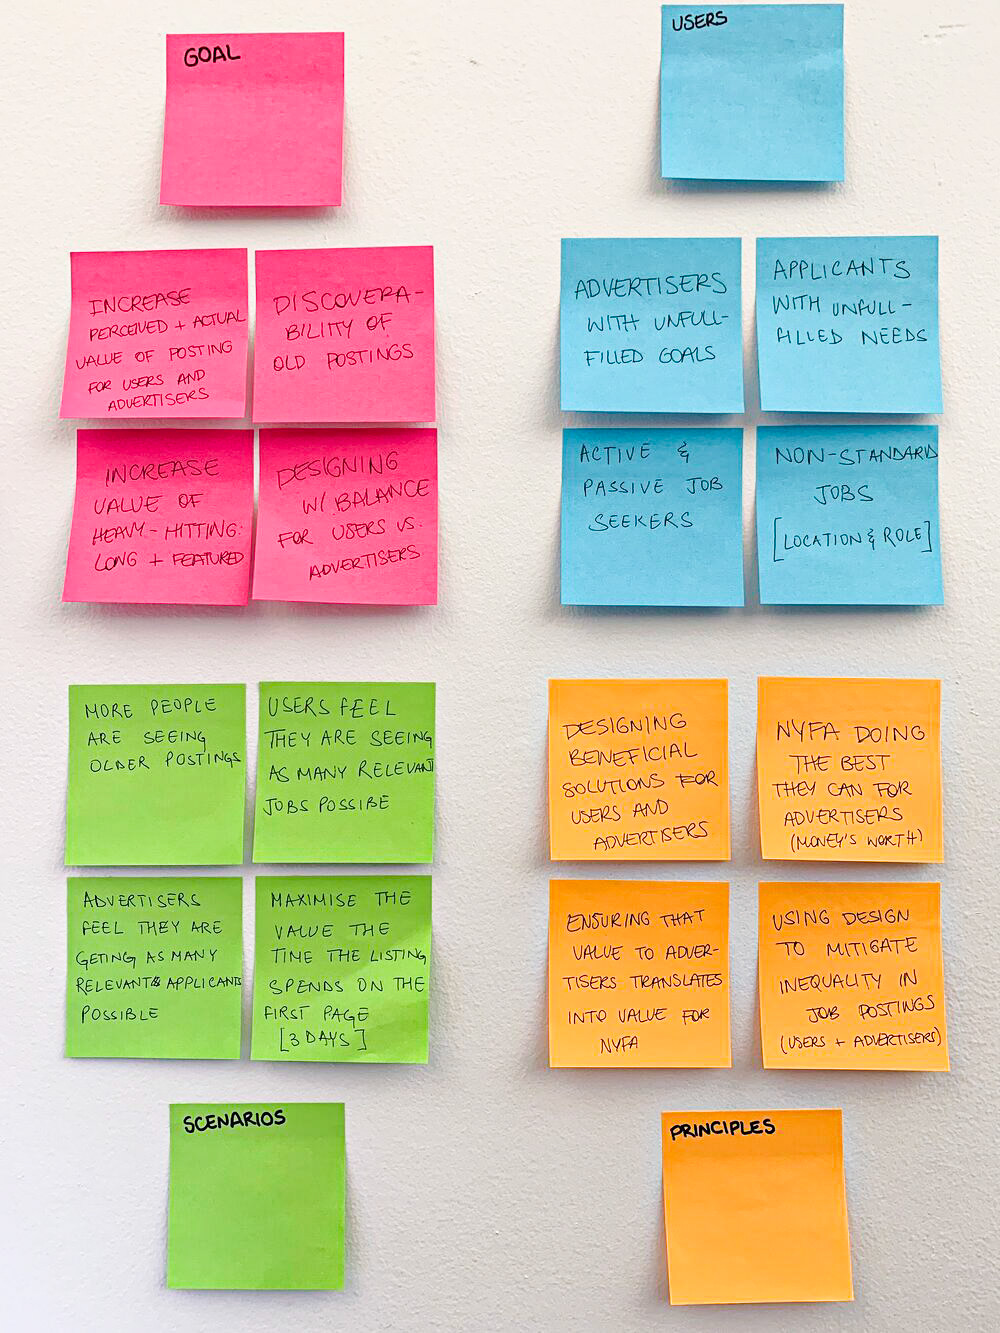 GOAL
USERS
INCREASE
PERCEIVED + ACTUAL
VALUE OF POSTING
FOR USERS AND
ADVERTISERS
DISCOVERA-
BILITY OF
OLD POSTINGS
INCREASE
VALUE OF
HEAVY-HITTING:
LONG + FEATURED
DESIGNING
W/ BALANCE
FOR USERS VS.
ADVERTISERS
ADVERTISERS
WITH UNFULL-
FILLED GOALS
APPLICANTS
WITH UNFULL-
FILLED NEEDS
ACTIVE &
PASSIVE JOB
SEEKERS
NON-STANDARD
JOBS
[LOCATION & ROLE]
MORE PEOPLE
ARE SEEING
OLDER POSTINGS
USERS FEEL
THEY ARE SEEING
AS MANY RELEVANT
JOBS POSSIBE
ADVERTISERS
FEEL THEY ARE
GETING AS MANY
RELEVANT APPLICANTS
POSSIBLE
MAXIMISE THE
VALUE THE
TIME THE LISTING
SPENDS ON THE
FIRST PAGE
[3 DAYS]
DESIGNING
BENEFICIAL
SOLUTIONS FOR
USERS AND
ADVERTISERS
NYFA DOING
THE BEST
THEY CAN FOR
ADVERTISERS
(MONEY'S WORTH)
ENSURING THAT
VALUE TO ADVER-
TISERS TRANSLATES
INTO VALUE FOR
NYFA
USING DESIGN
TO MITIGATE
INEQUALITY IN
JOB POSTINGS
(USERS + ADVERTISERS)
SCENARIOS
PRINCIPLES